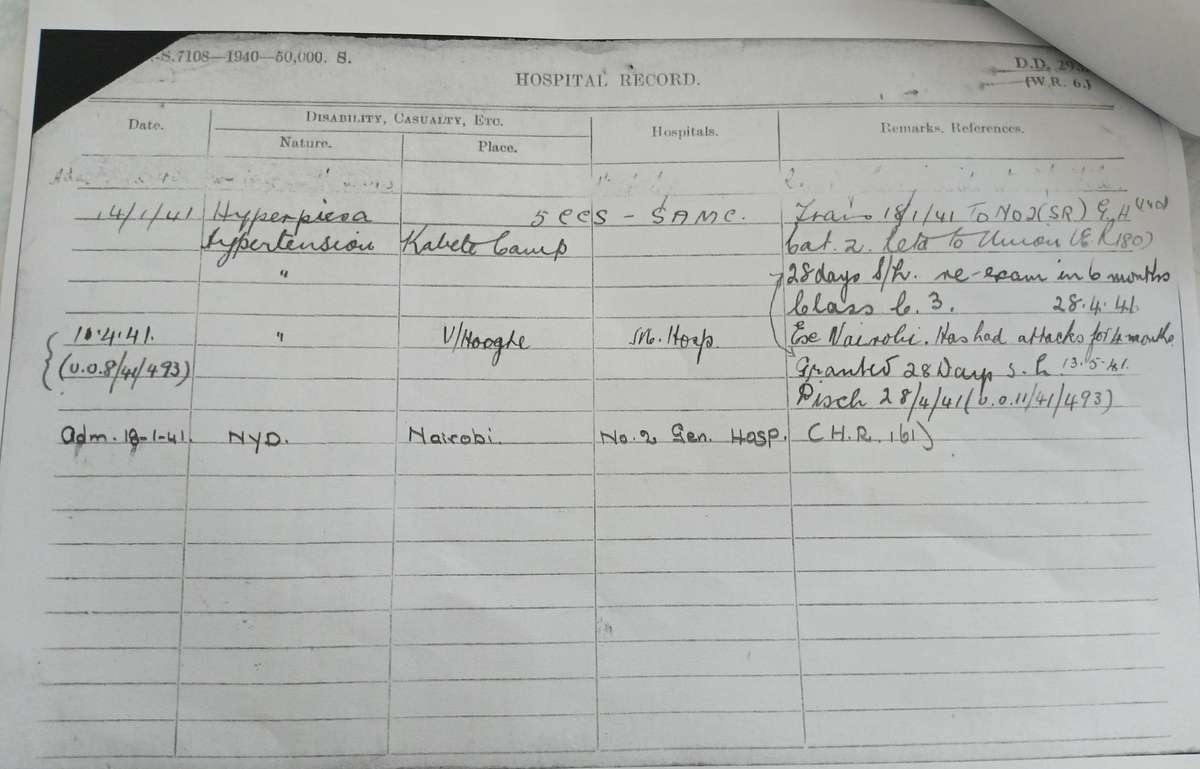 S.7108—1940—50,000. S.
D.D.
HOSPITAL RECORD.
(W.R. 6.)
Date.
DISABILITY, CASUALTY, ETC.
Hospitals.
Remarks. References.
Nature.
Place.
14/1/41 Hyperpiesa 5 CCS - SAMC. Trans 18/1/41 To No 2 (SR) G.H
Hypertension Kabete Camp Cat. 2. Retd to Union (E.R180)
" 28 days S/L. re-exam in 6 months
Class C. 3. 28.4.41.
10.4.41. " V/Hooghe Mil. Hosp. Exe Nairobi. Has had attacks for 4 months
(U.O.8/41/493) Granted 28 Days S.L. 13.5.41.
Disch 28/4/41 (U.O.11/41/493)
adm. 18-1-41. NYD. Nairobi. No. 2 Gen. Hosp. (H.R. 161)